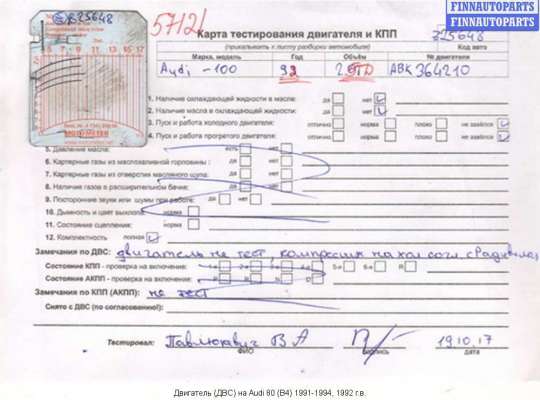 FINNAUTOPARTS
FINNAUTOPARTS
R25648
57121
Карта тестирования двигателя и КПП
(прикалывать к листу разборки автомобиля)
Z25648
Код авто
Марка, модель Год Объём № двигателя
Audi -100 92 АВК 364210
1. Наличие охлаждающей жидкости в масле: да нет
2. Наличие масла в охлаждающей жидкости: да нет
3. Пуск и работа холодного двигателя: отлично норма плохо не завёлся
4. Пуск и работа прогретого двигателя: отлично норма плохо не завёлся
5. Давление масла: есть нет
6. Картерные газы из маслозаливной горловины: да нет
7. Картерные газы из отверстия масляного щупа: да нет
8. Наличие газов в расширительном бачке: да нет
9. Посторонние звуки или шумы при работе: да нет
10. Дымность и цвет выхлопа: норма
11. Состояние сцепления: норма
12. Комплектность полная
Замечания по ДВС: двигатель не тест, компрессия на хол согл.
Состояние КПП - проверка на включение: 5-я 6-я R
Состояние АКПП - проверка на включение: P R N D
Замечания по КПП (АКПП): не тест
Снято с ДВС (по согласованию!):
Тестировал: Павлюкавич В А 19.10.17
ФИО подпись дата
Двигатель (ДВС) на Audi 80 (B4) 1991-1994, 1992 г.в.